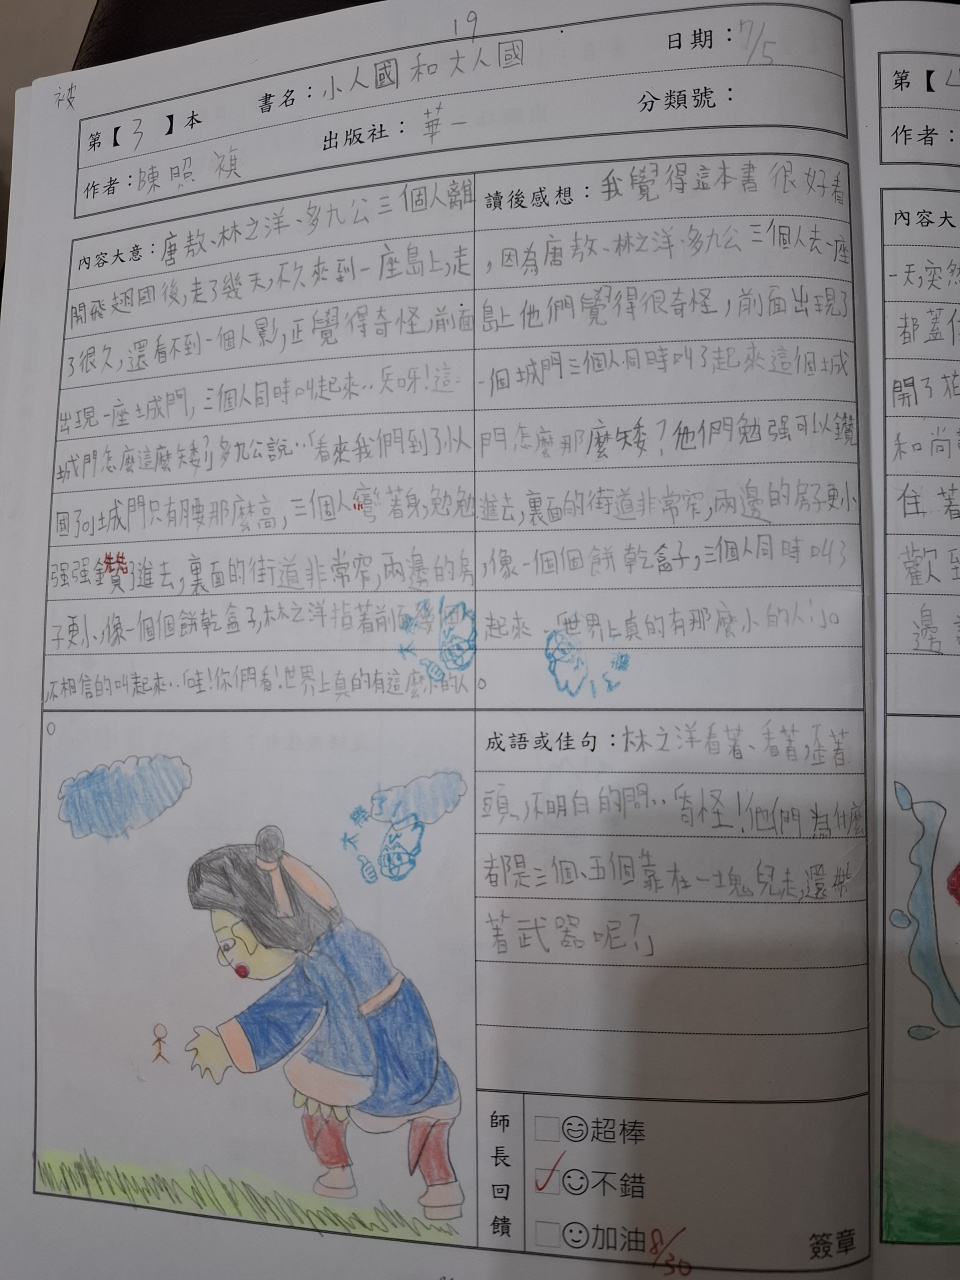 19
被
第【3】本
書名：小人國和大人國
日期：7/5
作者：陳照禎
出版社：華一
分類號：
內容大意：唐敖、林之洋、多九公三個人離
開飛翅國後，走了幾天，不久來到一座島上，走
了很久，還看不到一個人影，正覺得奇怪，前面
出現一座土城門，三個人同時叫起來：呀！這
城門怎麼這麼矮？」多九公說：「看來我們到了小人
國了。」城門只有腰那麼高，三個人彎著身，勉勉
强强鑽了進去，裏面的街道非常窄，兩邊的房
子更小，像一個個餅乾盒子，林之洋指著前面幾個人
不相信的叫起來：「哇！你們看！世界上真的有這麼小的人
。
讀後感想：我覺得這本書很好看
，因為唐敖、林之洋、多九公三個人去一座
島上他們覺得很奇怪，前面出現了
一個土城門三個人同時叫了起來這個土城
門怎麼那麼矮？他們勉强可以鑽
進去，裏面的街道非常窄，兩邊的房子更小
，像一個個餅乾盒子，三個人同時叫了
起來「世界上真的有那麼小的人」。
。
太棒了
成語或佳句：林之洋看著、看著，歪著
頭，不明白的問：「奇怪！他們為什麼
都是三個、五個靠在一塊兒走，還
著武器呢？」
師長回饋
超棒
不錯
加油
8/30
簽章
第【
作者：
內容大
一天，突然
都蓋住
開了花
和尚
住著
歡
邊